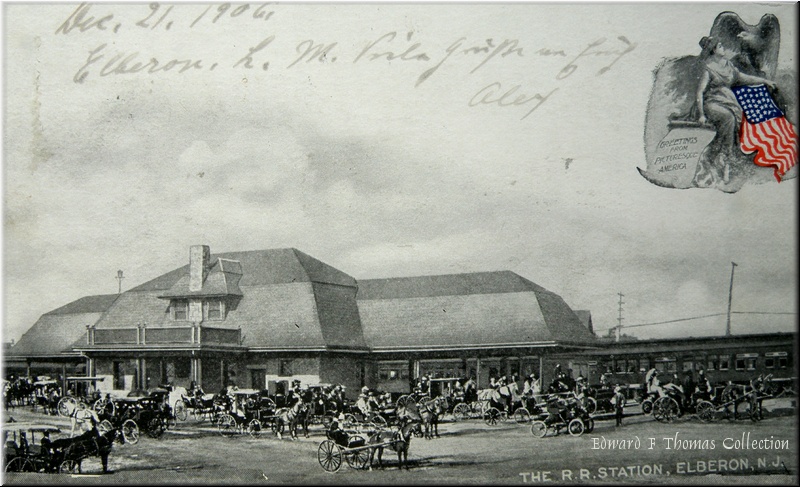 Dec. 21. 1906.
Elberon. L. M. Viele Grüße an Euch
Alex
GREETINGS
FROM
PICTURESQUE
AMERICA
Edward F Thomas Collection
THE R.R. STATION, ELBERON, N.J.